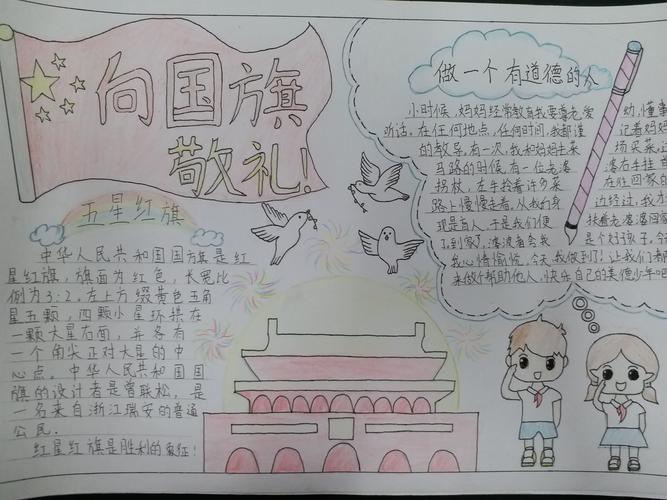 向国旗
敬礼!
五星红旗
中华人民共和国国旗是红
星红旗，旗面为红色，长宽比
例为3:2。左上方缀黄色五角
星五颗，四颗小星环拱在
一颗大星右面，并各有
一个角尖正对大星的中
心点。中华人民共和国国
旗的设计者是曾联松，是
一名来自浙江瑞安的普通
公民。
红星红旗是胜利的象征!
做一个有道德的人
小时候，妈妈经常教育我要尊老爱幼，懂事
听话。在任何地点，任何时间，我都谨记着妈妈
的教导。有一次，我和妈妈去菜场买菜，过
马路的时候，有一位老婆婆右手拄
拐杖，左手拎着许多菜，在胜回家的
路上慢慢走着，从我们身边经过，我
现是盲人，于是我们便扶着老婆婆回家
了到家了，婆婆是个好孩子。今天
我心情愉悦，今天，我做到了!让我们都
来做个帮助他人，快乐自己的美德少年吧